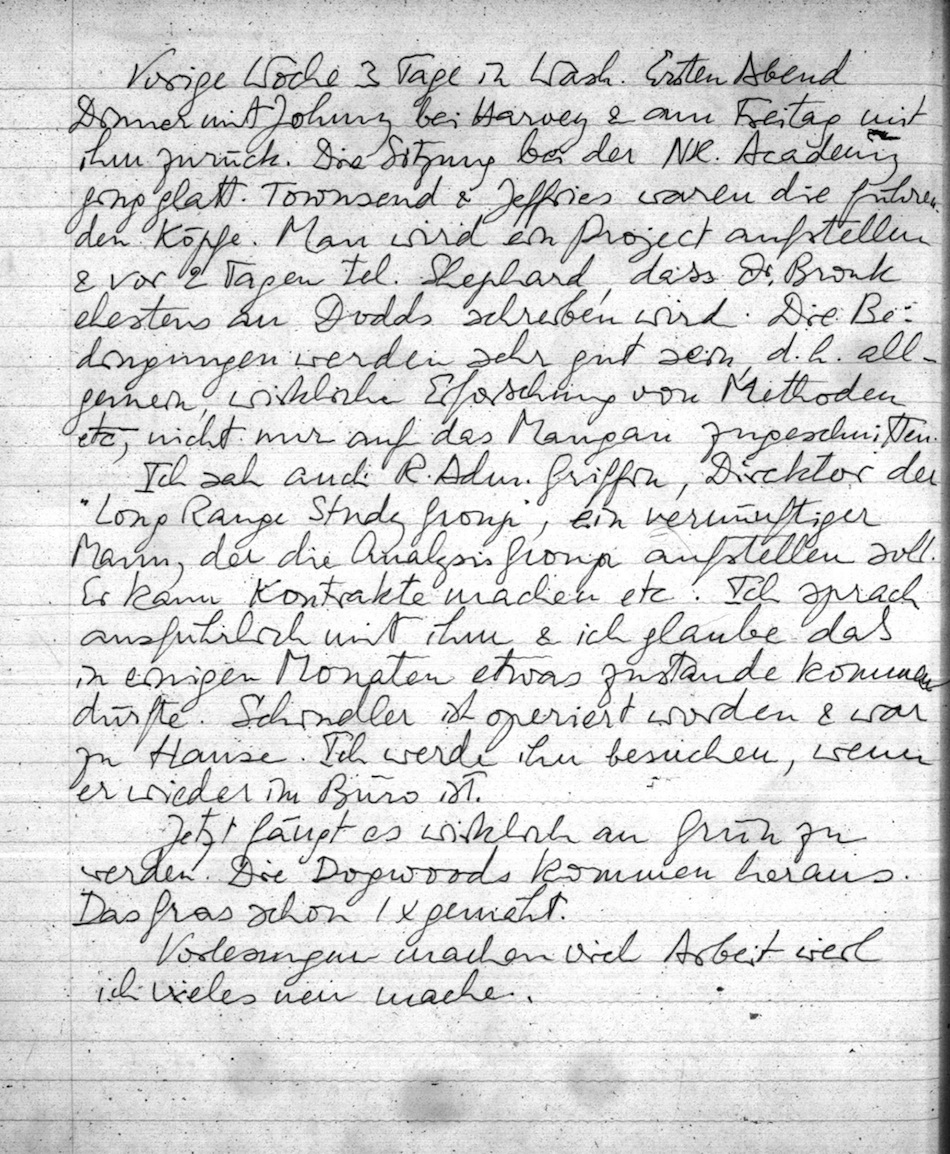 Vorige Woche 3 Tage in Wash. Ersten Abend
Dinner mit Johnny bei Harvey & am Freitag mit
ihm zurück. Die Sitzung bei der NR. Academy
ging glatt. Townsend & Jeffries waren die führen-
den Köpfe. Man wird ein Project aufstellen
& vor 2 Tagen tel. Shephard, dass Dr. Bronk
ehestens an Dodds schreiben wird. Die Be-
dingungen werden sehr gut sein, d.h. all-
gemein, wirkliche Erforschung von Methoden
etc, nicht nur auf das Mangan zugeschnitten.
Ich sah auch R. Adm. Griffin, Direktor der
"Long Range Study Group", ein vernünftiger
Mann, der die Analysis Group aufstellen soll.
Er kann Kontrakte machen etc. Ich sprach
ausführlich mit ihm & ich glaube daß
in einigen Monaten etwas zustande kommen
dürfte. Schindler ist operiert worden & war
zu Hause. Ich werde ihn besuchen, wenn
er wieder im Büro ist.
Jetzt fängt es wirklich an grün zu
werden. Die Dogwoods kommen heraus.
Das Gras schon 1x gemäht.
Vorlesungen machen viel Arbeit weil
ich vieles neu mache.